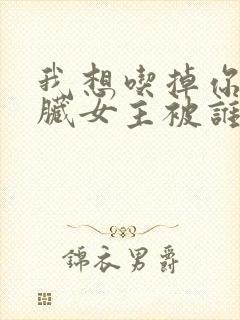 我想喫掉你
臟女主被誰
錦衣男爵